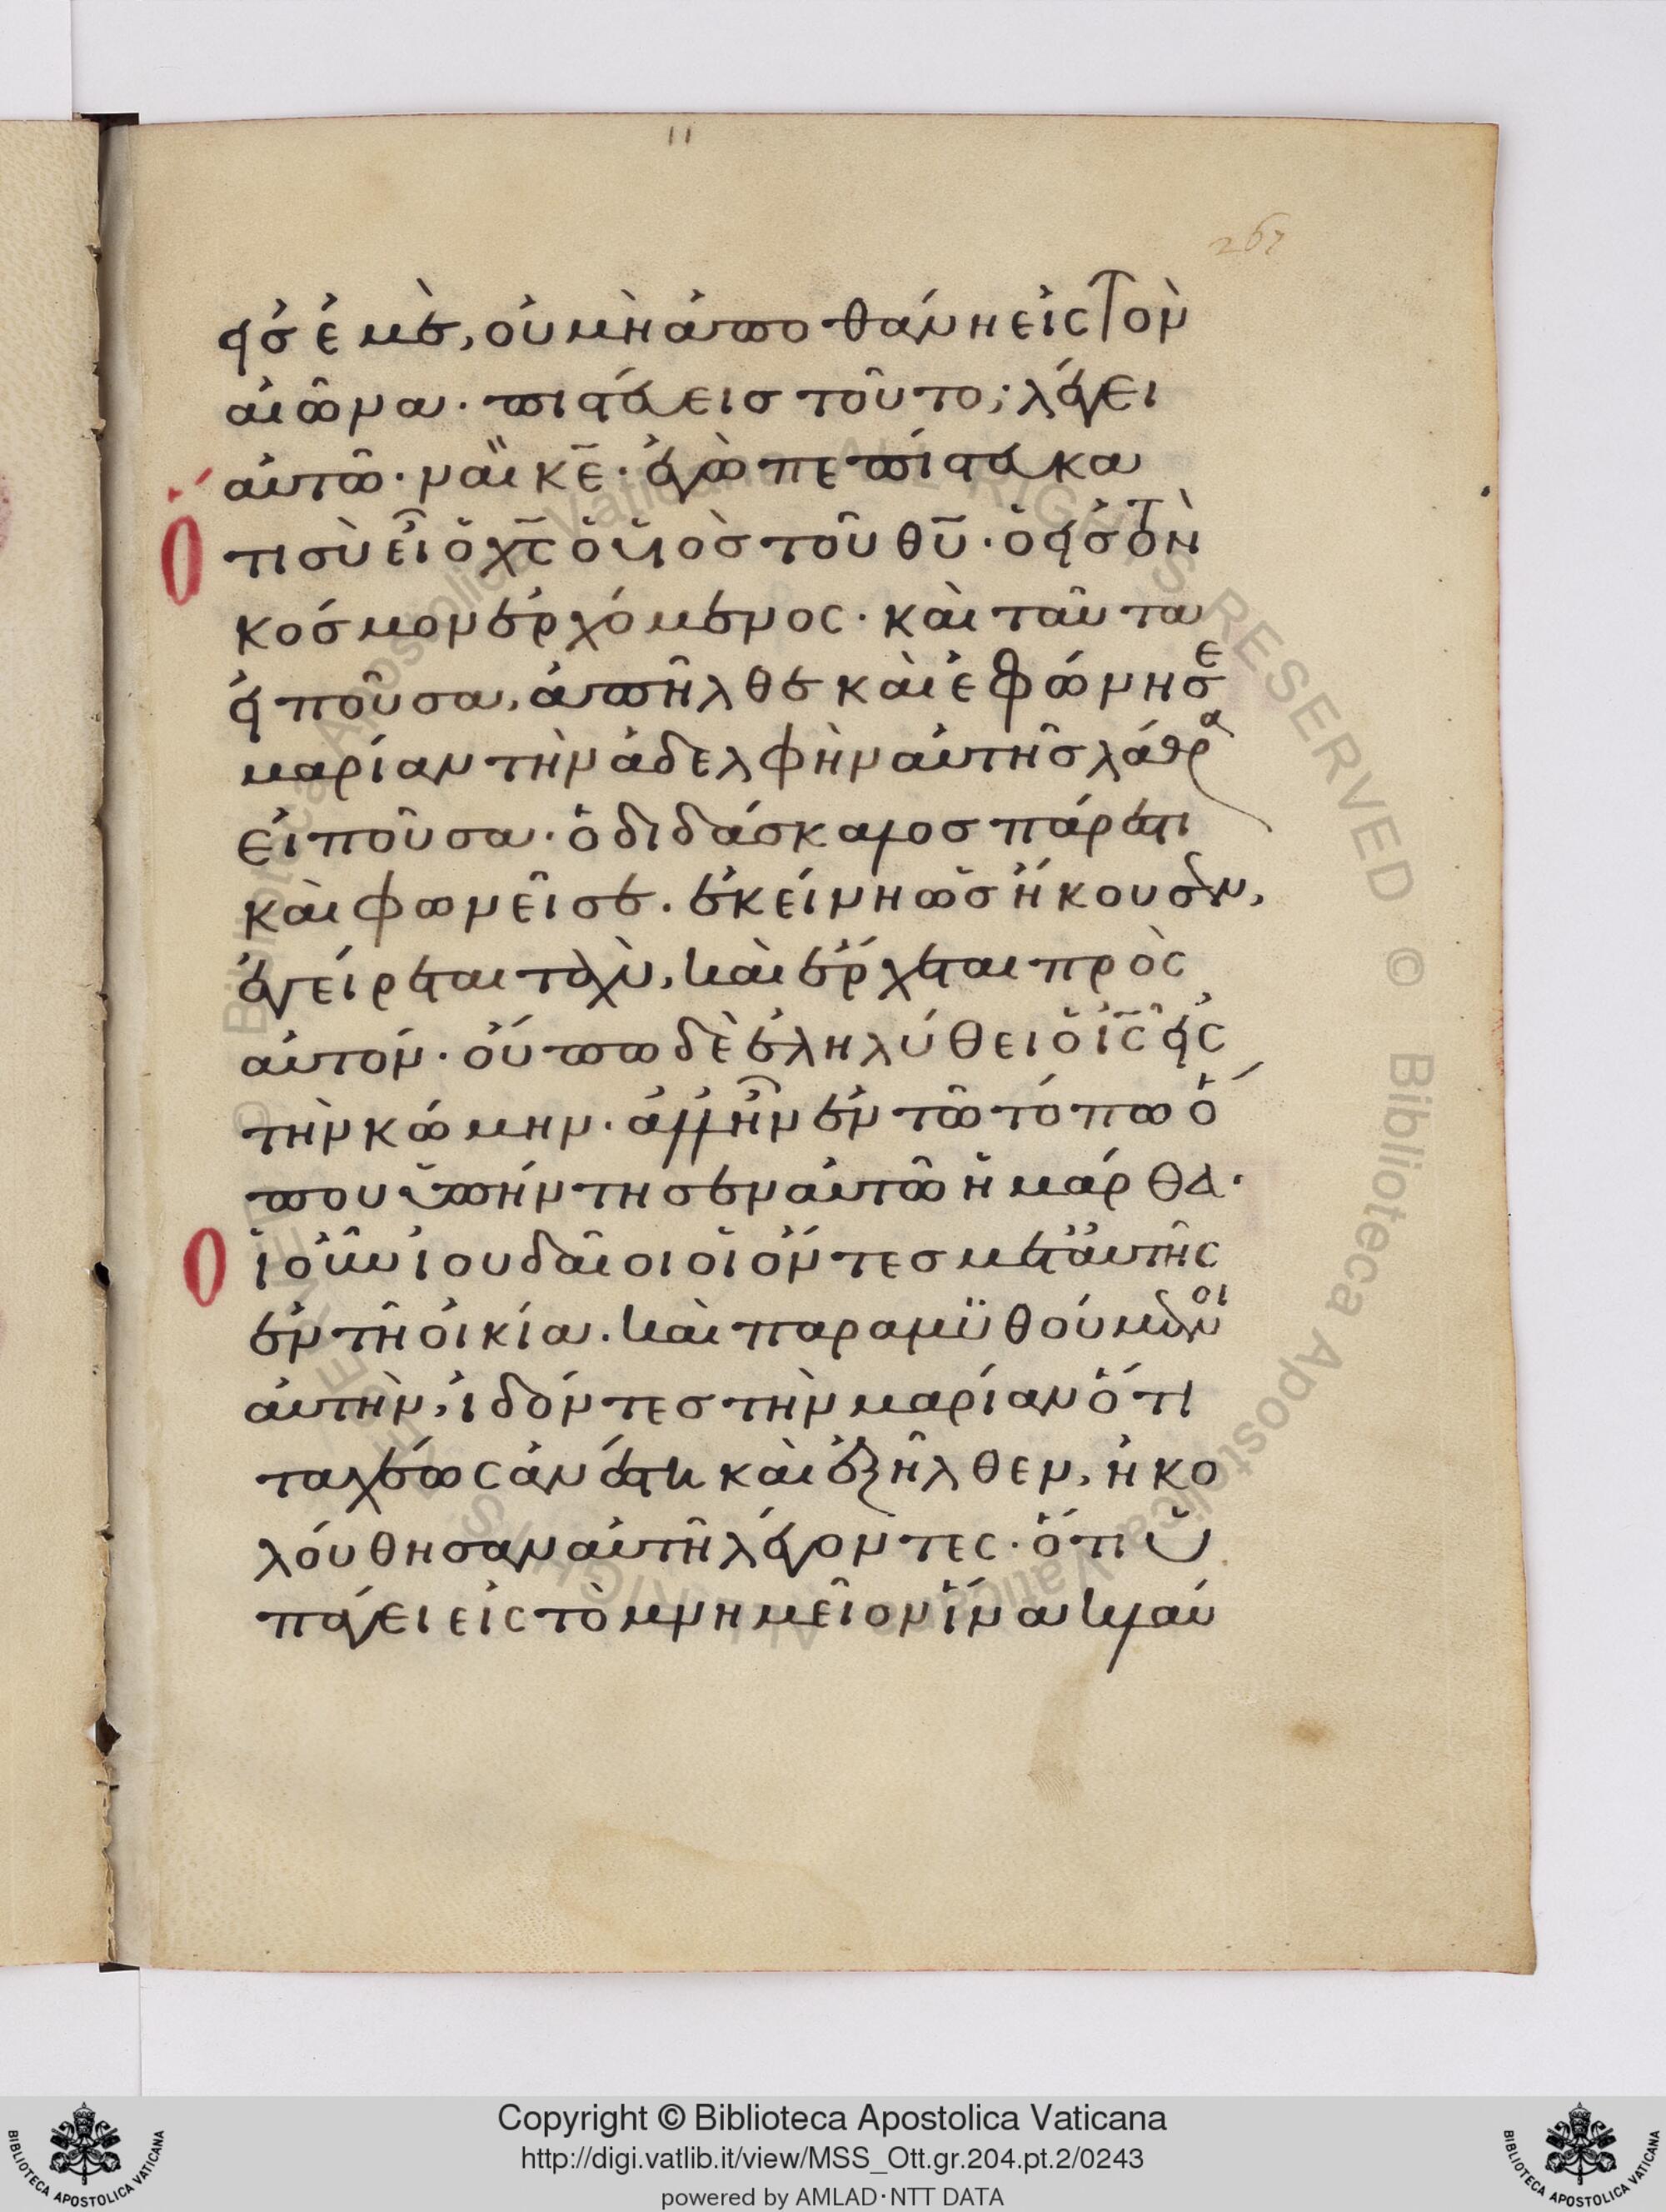 11
267
εἰς ἐμὲ, οὐ μὴ ἀποθάνη εἰς τὸν
αἰῶνα· πιστεύεις τοῦτο; λέγει
αὐτῶ· ναὶ κ̅ε̅· ἐγὼ πεπίστευκα
Ὅτι σὺ εἶ ὁ χ̅ς̅ ὁ υἱὸς τοῦ θ̅υ̅· ὁ εἰς τὸν
κόσμον ἐρχόμενος· καὶ ταῦτα
εἰποῦσα, ἀπῆλθε καὶ ἐφώνησε
μαρίαν τὴν ἀδελφὴν αὐτῆς λάθρα
εἰποῦσα· ὁ διδάσκαλος πάρεστι
καὶ φωνεῖ σε. ἐκείνη ὡς ἤκουσεν,
ἐγείρεται ταχὺ, καὶ ἔρχεται πρὸς
αὐτόν· οὔπω δὲ ἐληλύθει ὁ ι̅ς̅ εἰς
τὴν κώμην· ἀλλ' ἦν ἐν τῶ τόπω ὅ
που ὑπήντησεν αὐτῶ ἡ μάρθα·
Οἱ οὖν ἰουδαῖοι οἱ ὄντες μετ' αὐτῆς
ἐν τῆ οἰκία. καὶ παραμϋθούμενοι
αὐτὴν, ἰδόντες τὴν μαρίαν ὅτι
ταχέως ἀνέστη καὶ ἐξῆλθεν, ἠκο
λούθησαν αὐτῆ λέγοντες· ὅτι ὑ
πάγει εἰς τὸ μνημεῖον ἵνα κλαύ
© Biblioteca Apostolica Vaticana ALL RIGHTS RESERVED © Biblioteca Apostolica Vaticana ALL RIGHTS RESERVED
BIBLIOTECA APOSTOLICA VATICANA
Copyright © Biblioteca Apostolica Vaticana
http://digi.vatlib.it/view/MSS_Ott.gr.204.pt.2/0243
powered by AMLAD·NTT DATA
BIBLIOTECA APOSTOLICA VATICANA